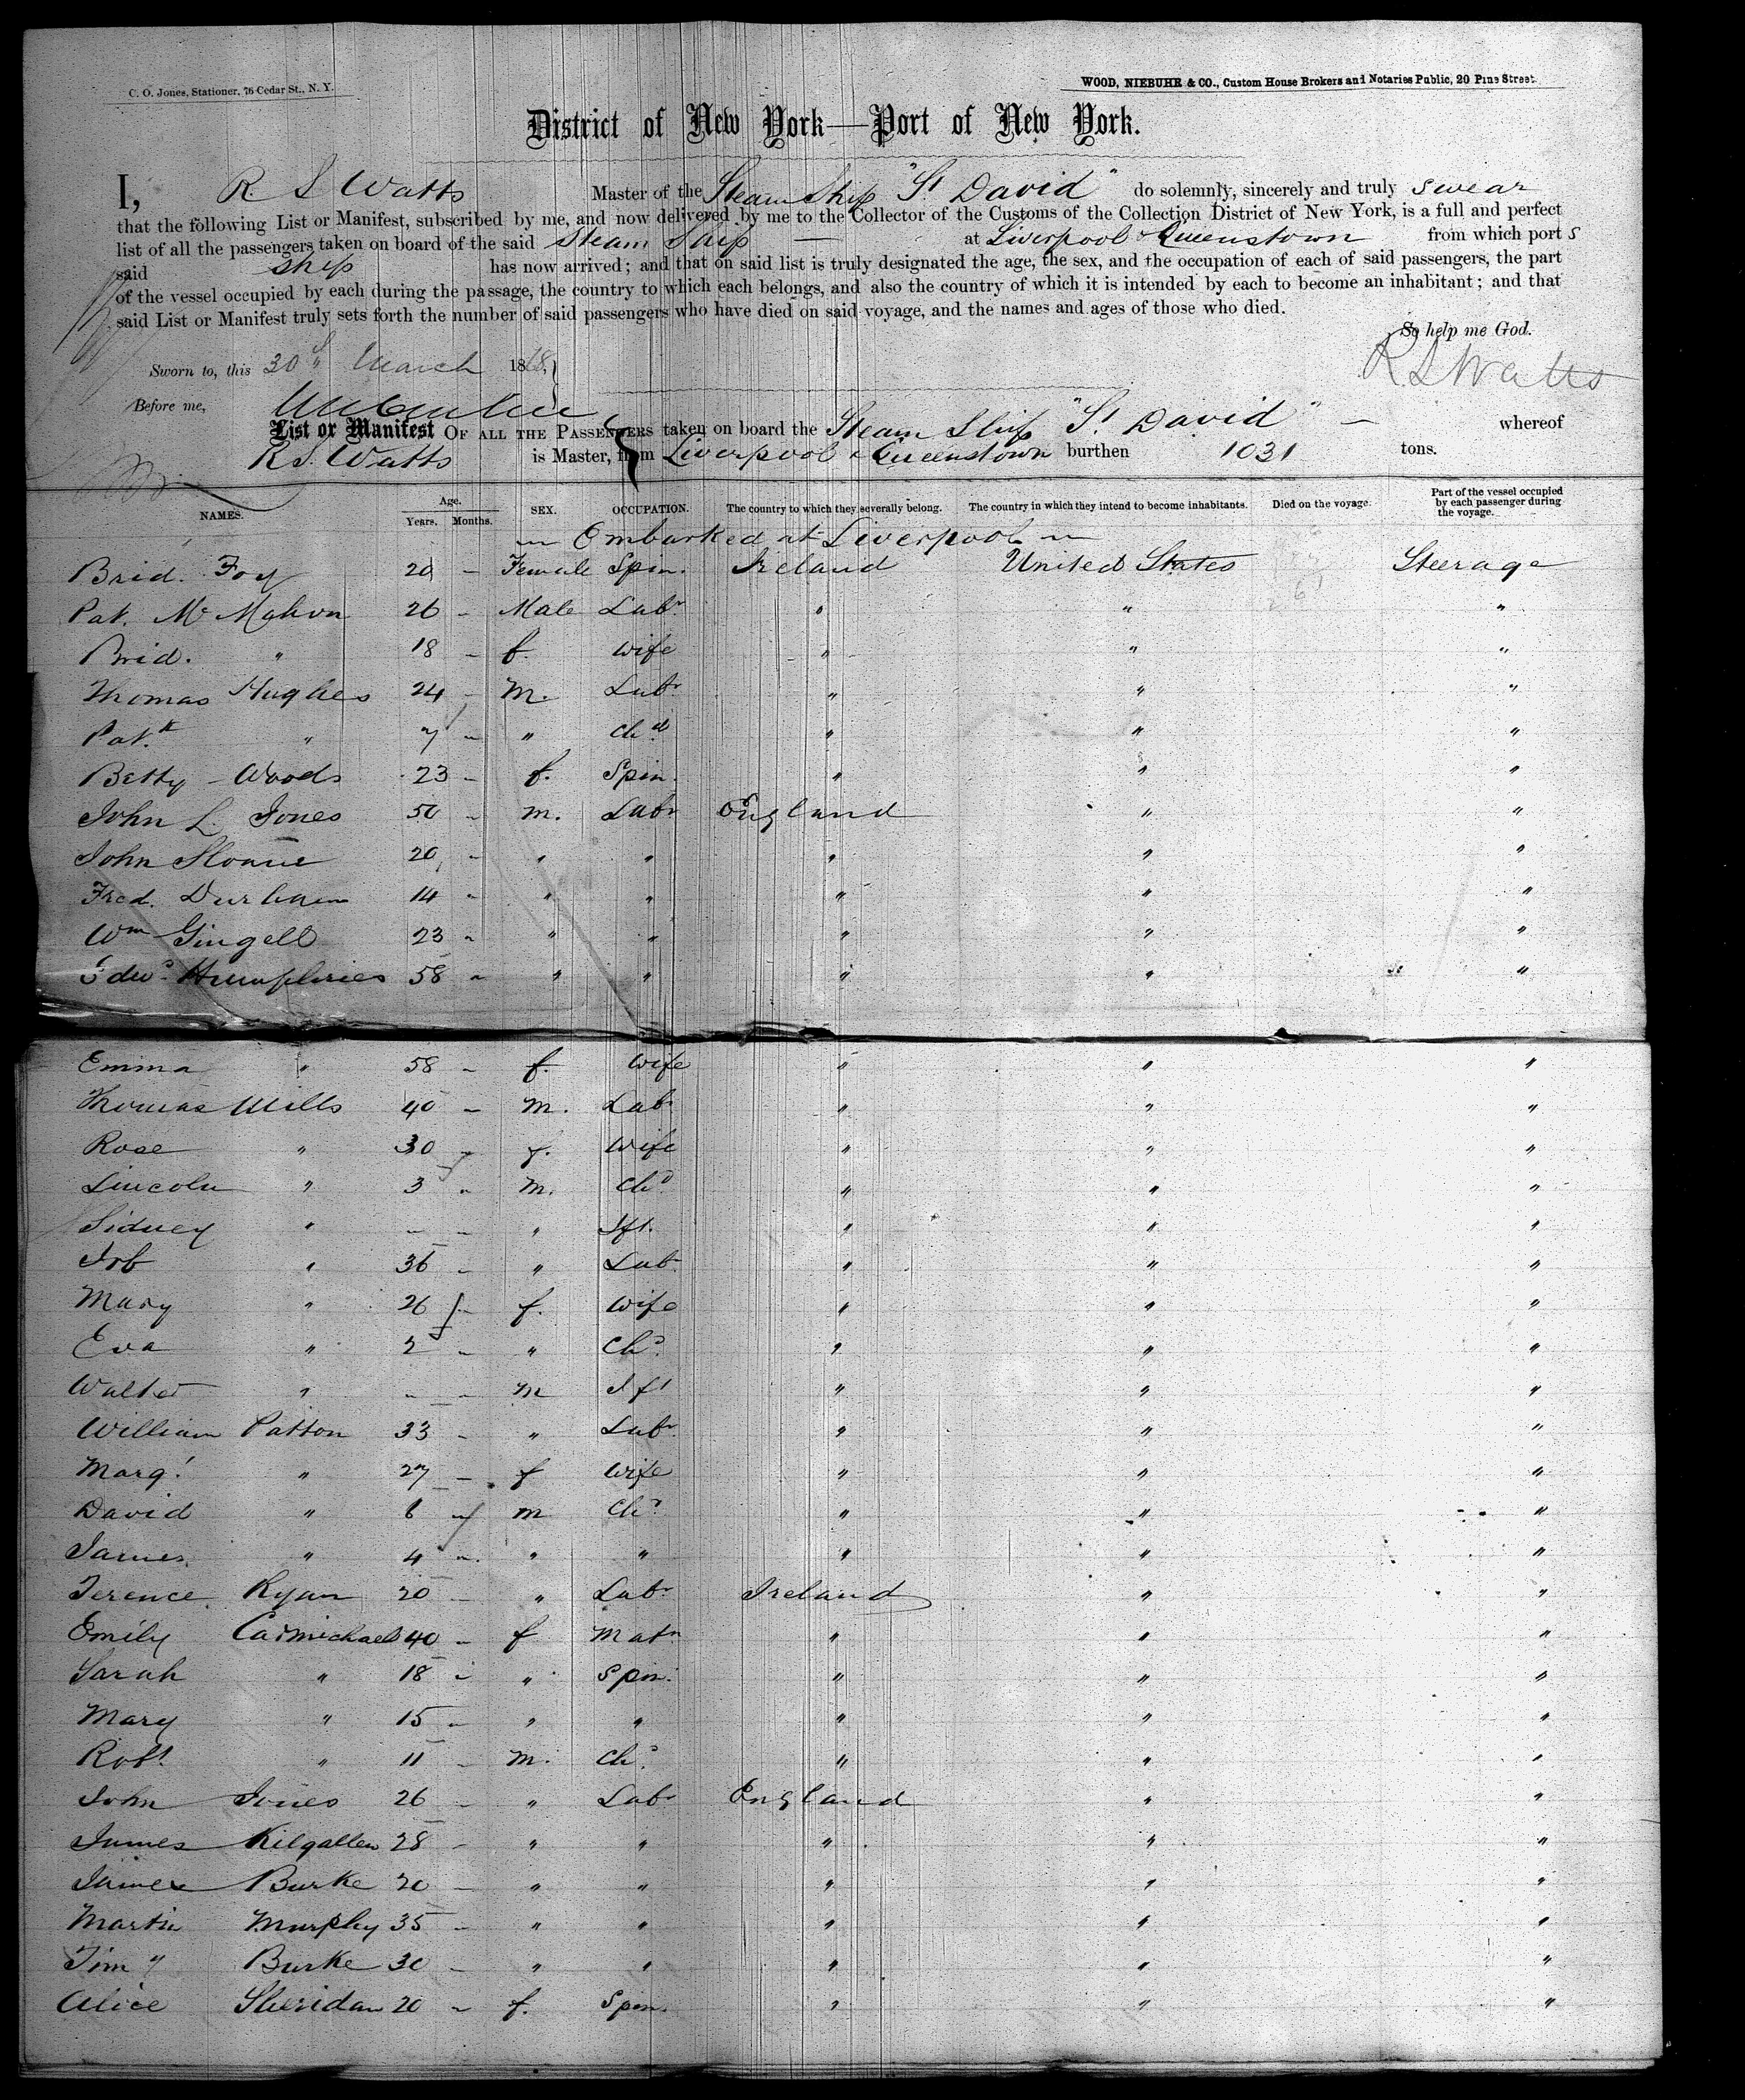 C. O. Jones, Stationer, 76 Cedar St., N. Y.
WOOD, NIEBUHR & CO., Custom House Brokers and Notaries Public, 20 Pine Street.
District of New York—Port of New York.
I, R. S Watts Master of the Steam Ship "St David" do solemnly, sincerely and truly swear
that the following List or Manifest, subscribed by me, and now delivered by me to the Collector of the Customs of the Collection District of New York, is a full and perfect
list of all the passengers taken on board of the said Steam Ship — at Liverpool & Queenstown from which port s
said ship has now arrived; and that on said list is truly designated the age, the sex, and the occupation of each of said passengers, the part
of the vessel occupied by each during the passage, the country to which each belongs, and also the country of which it is intended by each to become an inhabitant; and that
said List or Manifest truly sets forth the number of said passengers who have died on said voyage, and the names and ages of those who died.
So help me God.
Sworn to, this 30th March 1868, R S Watts
Before me,
List or Manifest OF ALL THE PASSENGERS taken on board the Steam Ship "St David" — whereof
R S. Watts is Master, from Liverpool & Queenstown burthen 1031 tons.
NAMES. Age. Years. Months. SEX. OCCUPATION. The country to which they severally belong. The country in which they intend to become inhabitants. Died on the voyage. Part of the vessel occupied by each passenger during the voyage.
Embarked at Liverpool
Brid. Foy 20 - Female Spin. Ireland United States Steerage
Pat. Mc Mahon 26 - Male Labr " " "
Brid. " 18 - f. wife " " "
Thomas Hughes 24 - M. Labr " " "
Patk " 7 - " Chd " " "
Betty Woods 23 - f. Spin. " " "
John L. Jones 50 - m. Labr England " "
John Sloane 20 - " " " " "
Fred. Durham 14 - " " " " "
Wm Gingell 23 - " " " " "
Edwd Humphries 58 - " " " " "
Emma " 58 - f. wife " " "
Thomas Mills 40 - m. Labr " " "
Rose " 30 - f. wife " " "
Lincoln " 3 - m. Chd " " "
Sidney " - - " Ift. " " "
Job " 36 - " Labr " " "
Mary " 26 - f. wife " " "
Eva " 2 - " Chd " " "
Walter " - - m Ift " " "
William Patton 33 - " Labr " " "
Margt " 27 - f wife " " "
David " 6 - m Chd " " "
James " 4 - " " " " "
Terence Ryan 20 - " Labr Ireland " "
Emily Carmichael 40 - f Matn " " "
Sarah " 18 - " Spin. " " "
Mary " 15 - " " " " "
Robt " 11 - m. Chd " " "
John Jones 26 - " Labr England " "
James Kilgallen 28 - " " " " "
James Burke 20 - " " " " "
Martin Murphy 35 - " " " " "
Timy Burke 30 - " " " " "
Alice Sheridan 20 - f. Spin. " " "